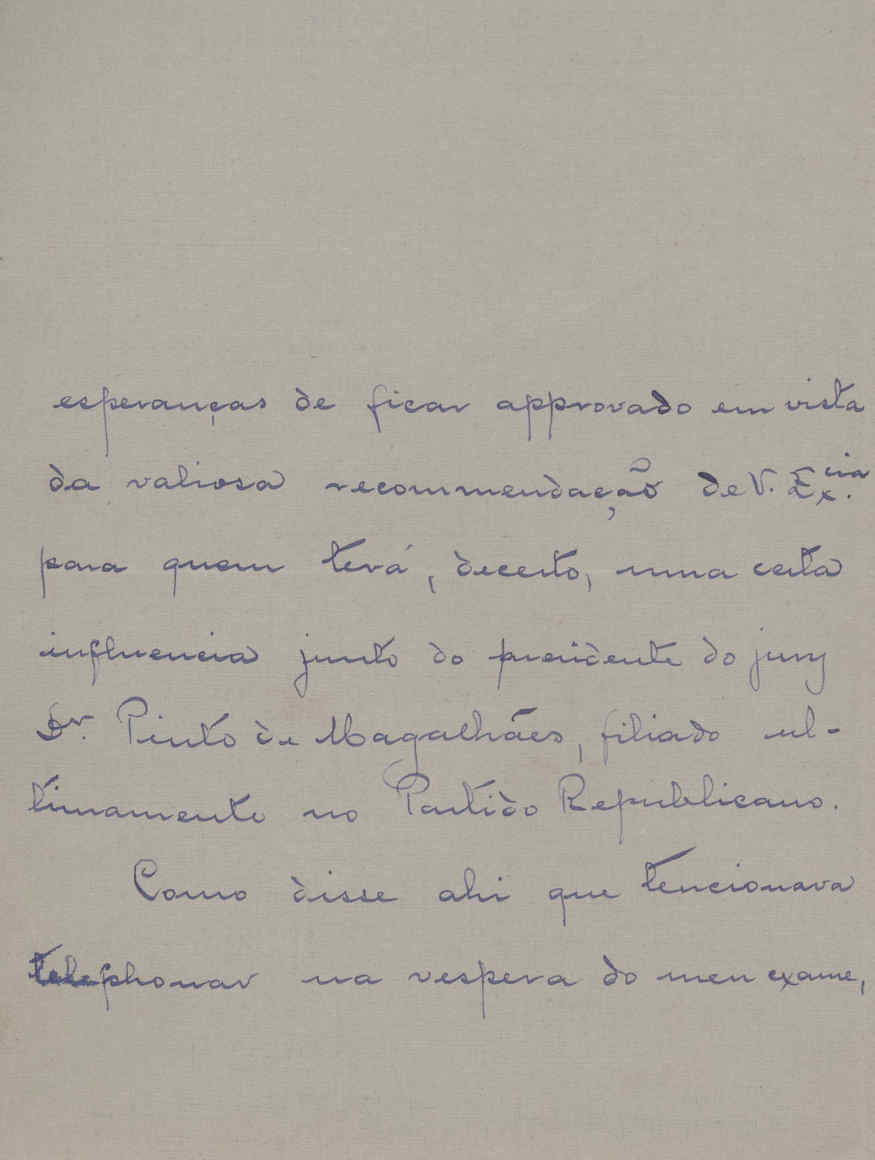 esperanças de ficar approvado em vista
da valiosa recommendação de V. Ex.cia
para quem terá, decerto, uma certa
influencia junto do presidente do jury
Dr. Pinto de Magalhães, filiado ul-
timamente no Partido Republicano.
Como disse ahi que tencionava
telephonar na vespera do meu exame,